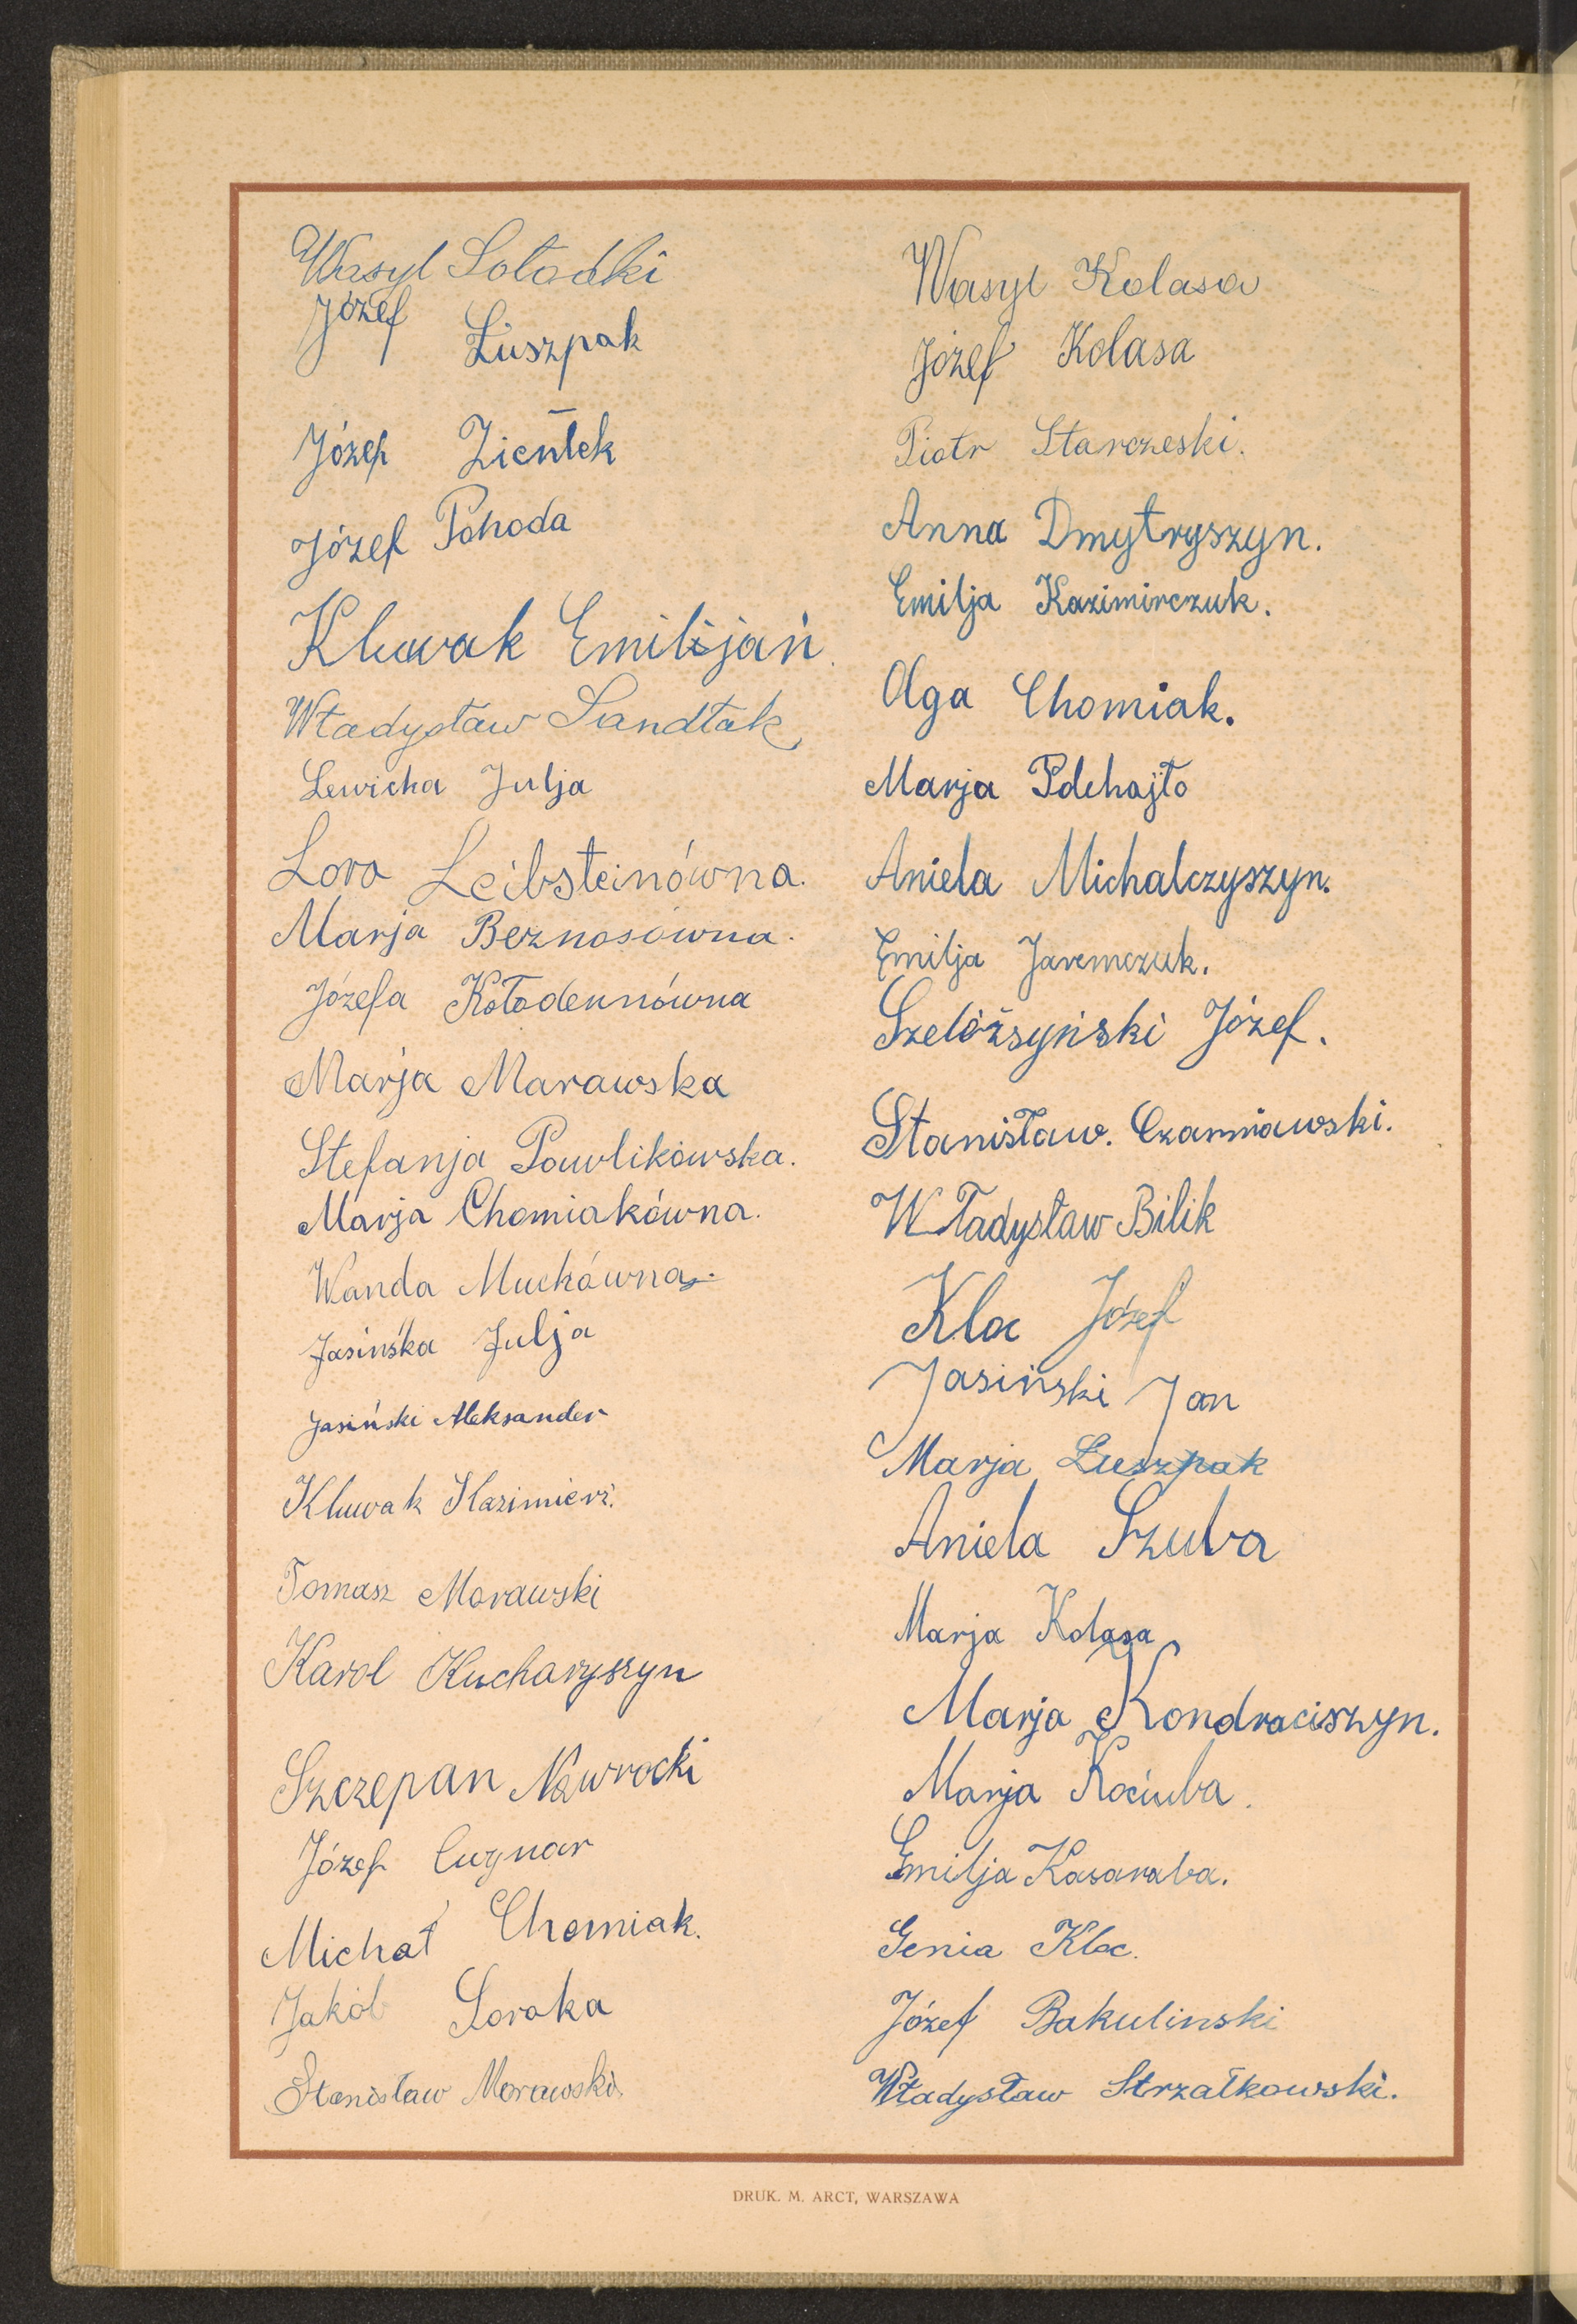 Wasyl Sołodki
Józef Łuszpak
Józef Zientek
Józef Pohoda
Kluwak Emilijan
Władysław Sandłak
Lewicka Julja
Lora Leibsteinówna.
Marja Beznosówna.
Józefa Kołodennówna
Marja Marawska
Stefanja Pawlikowska.
Marja Chomiakówna.
Wanda Muchówna
Jasińska Julja
Jasiński Aleksander
Kluwak Kazimierz.
Tomasz Morawski
Karol Kucharyszyn
Szczepan Nawrocki
Józef Cugnar
Michał Chomiak.
Jakób Soroka
Stanisław Morawski.
Wasyl Kolasa
Józef Kolasa
Piotr Starczeski.
Anna Dmytryszyn.
Emilja Kazimirczuk.
Olga Chomiak.
Marja Pdehajło
Aniela Michalczyszyn.
Emilja Jaremczuk.
Szelożsyński Józef.
Stanisław. Czarniawski.
Władysław Bilik
Kloc Józef
Jasiński Jan
Marja Łuszpak
Aniela Szuba
Marja Kolasa
Marja Kondraciszyn.
Marja Kociuba.
Emilja Kasaraba.
Genia Kloc.
Józef Bakulinski
Władysław Strzałkowski.
DRUK. M. ARCT, WARSZAWA